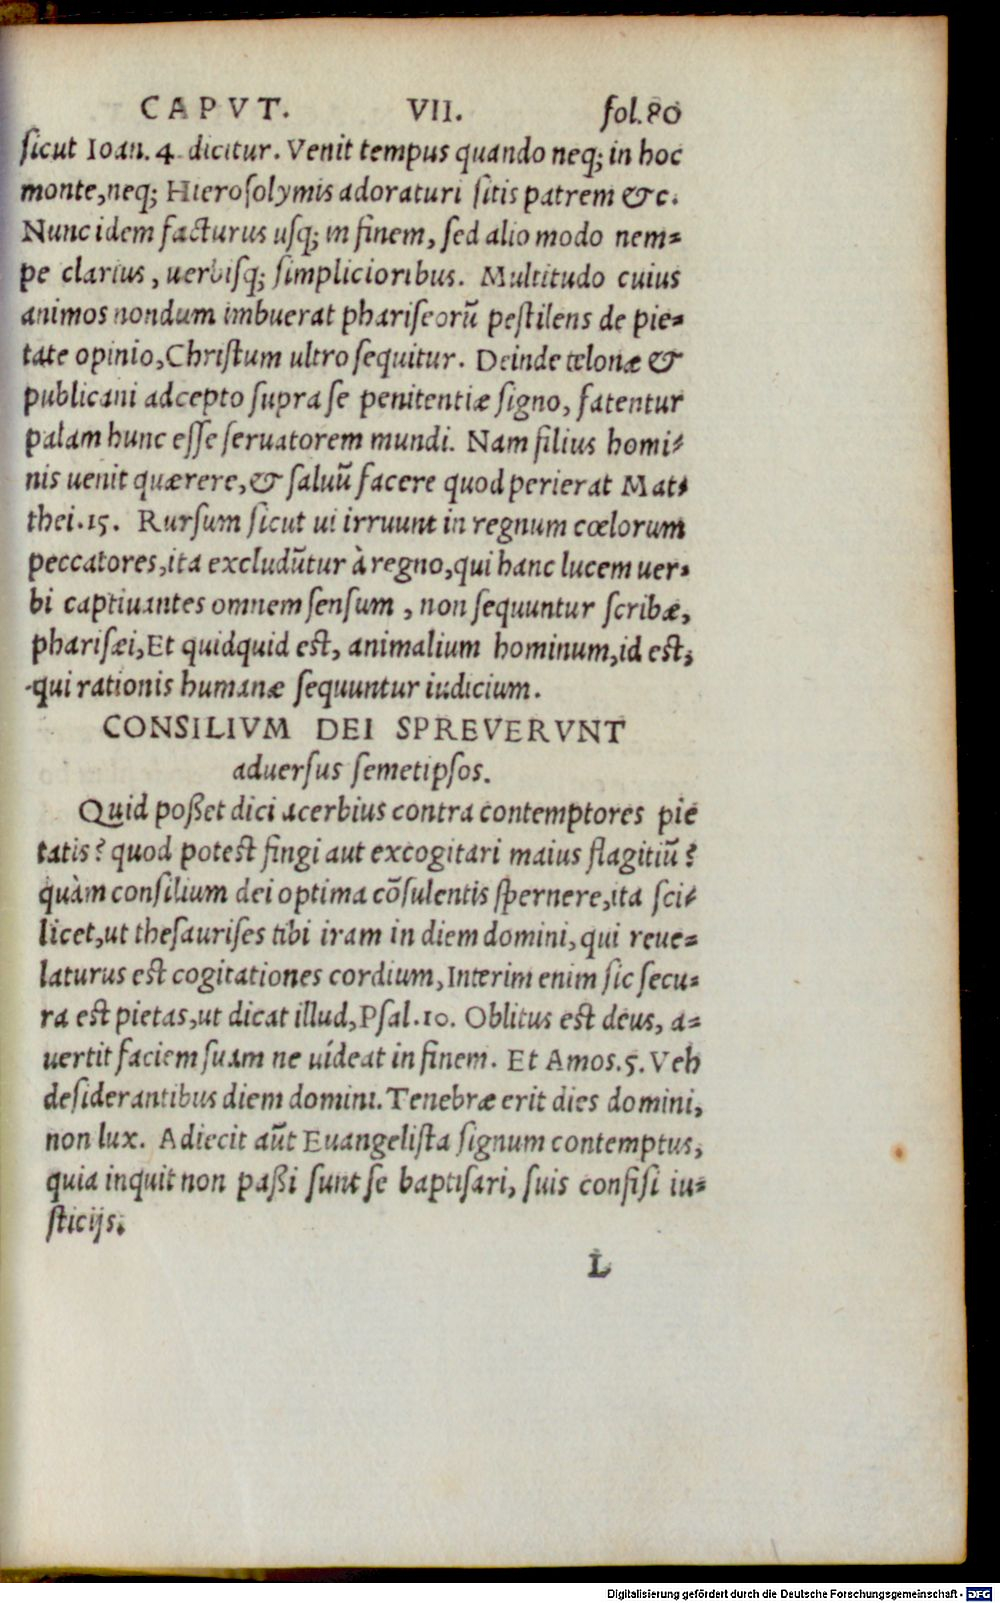 CAPVT. VII. fol.80
sicut Ioan. 4 dicitur. Venit tempus quando neq; in hoc
monte, neq; Hierosolymis adoraturi sitis patrem &c.
Nunc idem facturus usq; in finem, sed alio modo nem=
pe clarius, uerbisq; simplicioribus. Multitudo cuius
animos nondum imbuerat phariseorū pestilens de pie=
tate opinio, Christum ultro sequitur. Deinde telonæ &
publicani adcepto supra se penitentiæ signo, fatentur
palam hunc esse seruatorem mundi. Nam filius homi=
nis uenit quærere, & saluū facere quod perierat Mat=
thei.15. Rursum sicut ui irruunt in regnum cœlorum
peccatores, ita excludūtur à regno, qui hanc lucem uer=
bi captiuantes omnem sensum, non sequuntur scribæ,
pharisæi, Et quidquid est, animalium hominum, id est,
qui rationis humanæ sequuntur iudicium.
CONSILIVM DEI SPREVERVNT
aduersus semetipsos.
Quid poßet dici acerbius contra contemptores pie
tatis? quod potest fingi aut excogitari maius flagitiū?
quàm consilium dei optima cōsulentis spernere, ita sci=
licet, ut thesaurises tibi iram in diem domini, qui reue=
laturus est cogitationes cordium, Interim enim sic secu=
ra est pietas, ut dicat illud, Psal.10. Oblitus est deus, a=
uertit faciem suam ne uideat in finem. Et Amos.5. Veh
desiderantibus diem domini. Tenebræ erit dies domini,
non lux. Adiecit aūt Euangelista signum contemptus,
quia inquit non paßi sunt se baptisari, suis confisi iu=
sticijs.
L
Digitalisierung gefördert durch die Deutsche Forschungsgemeinschaft - DFG